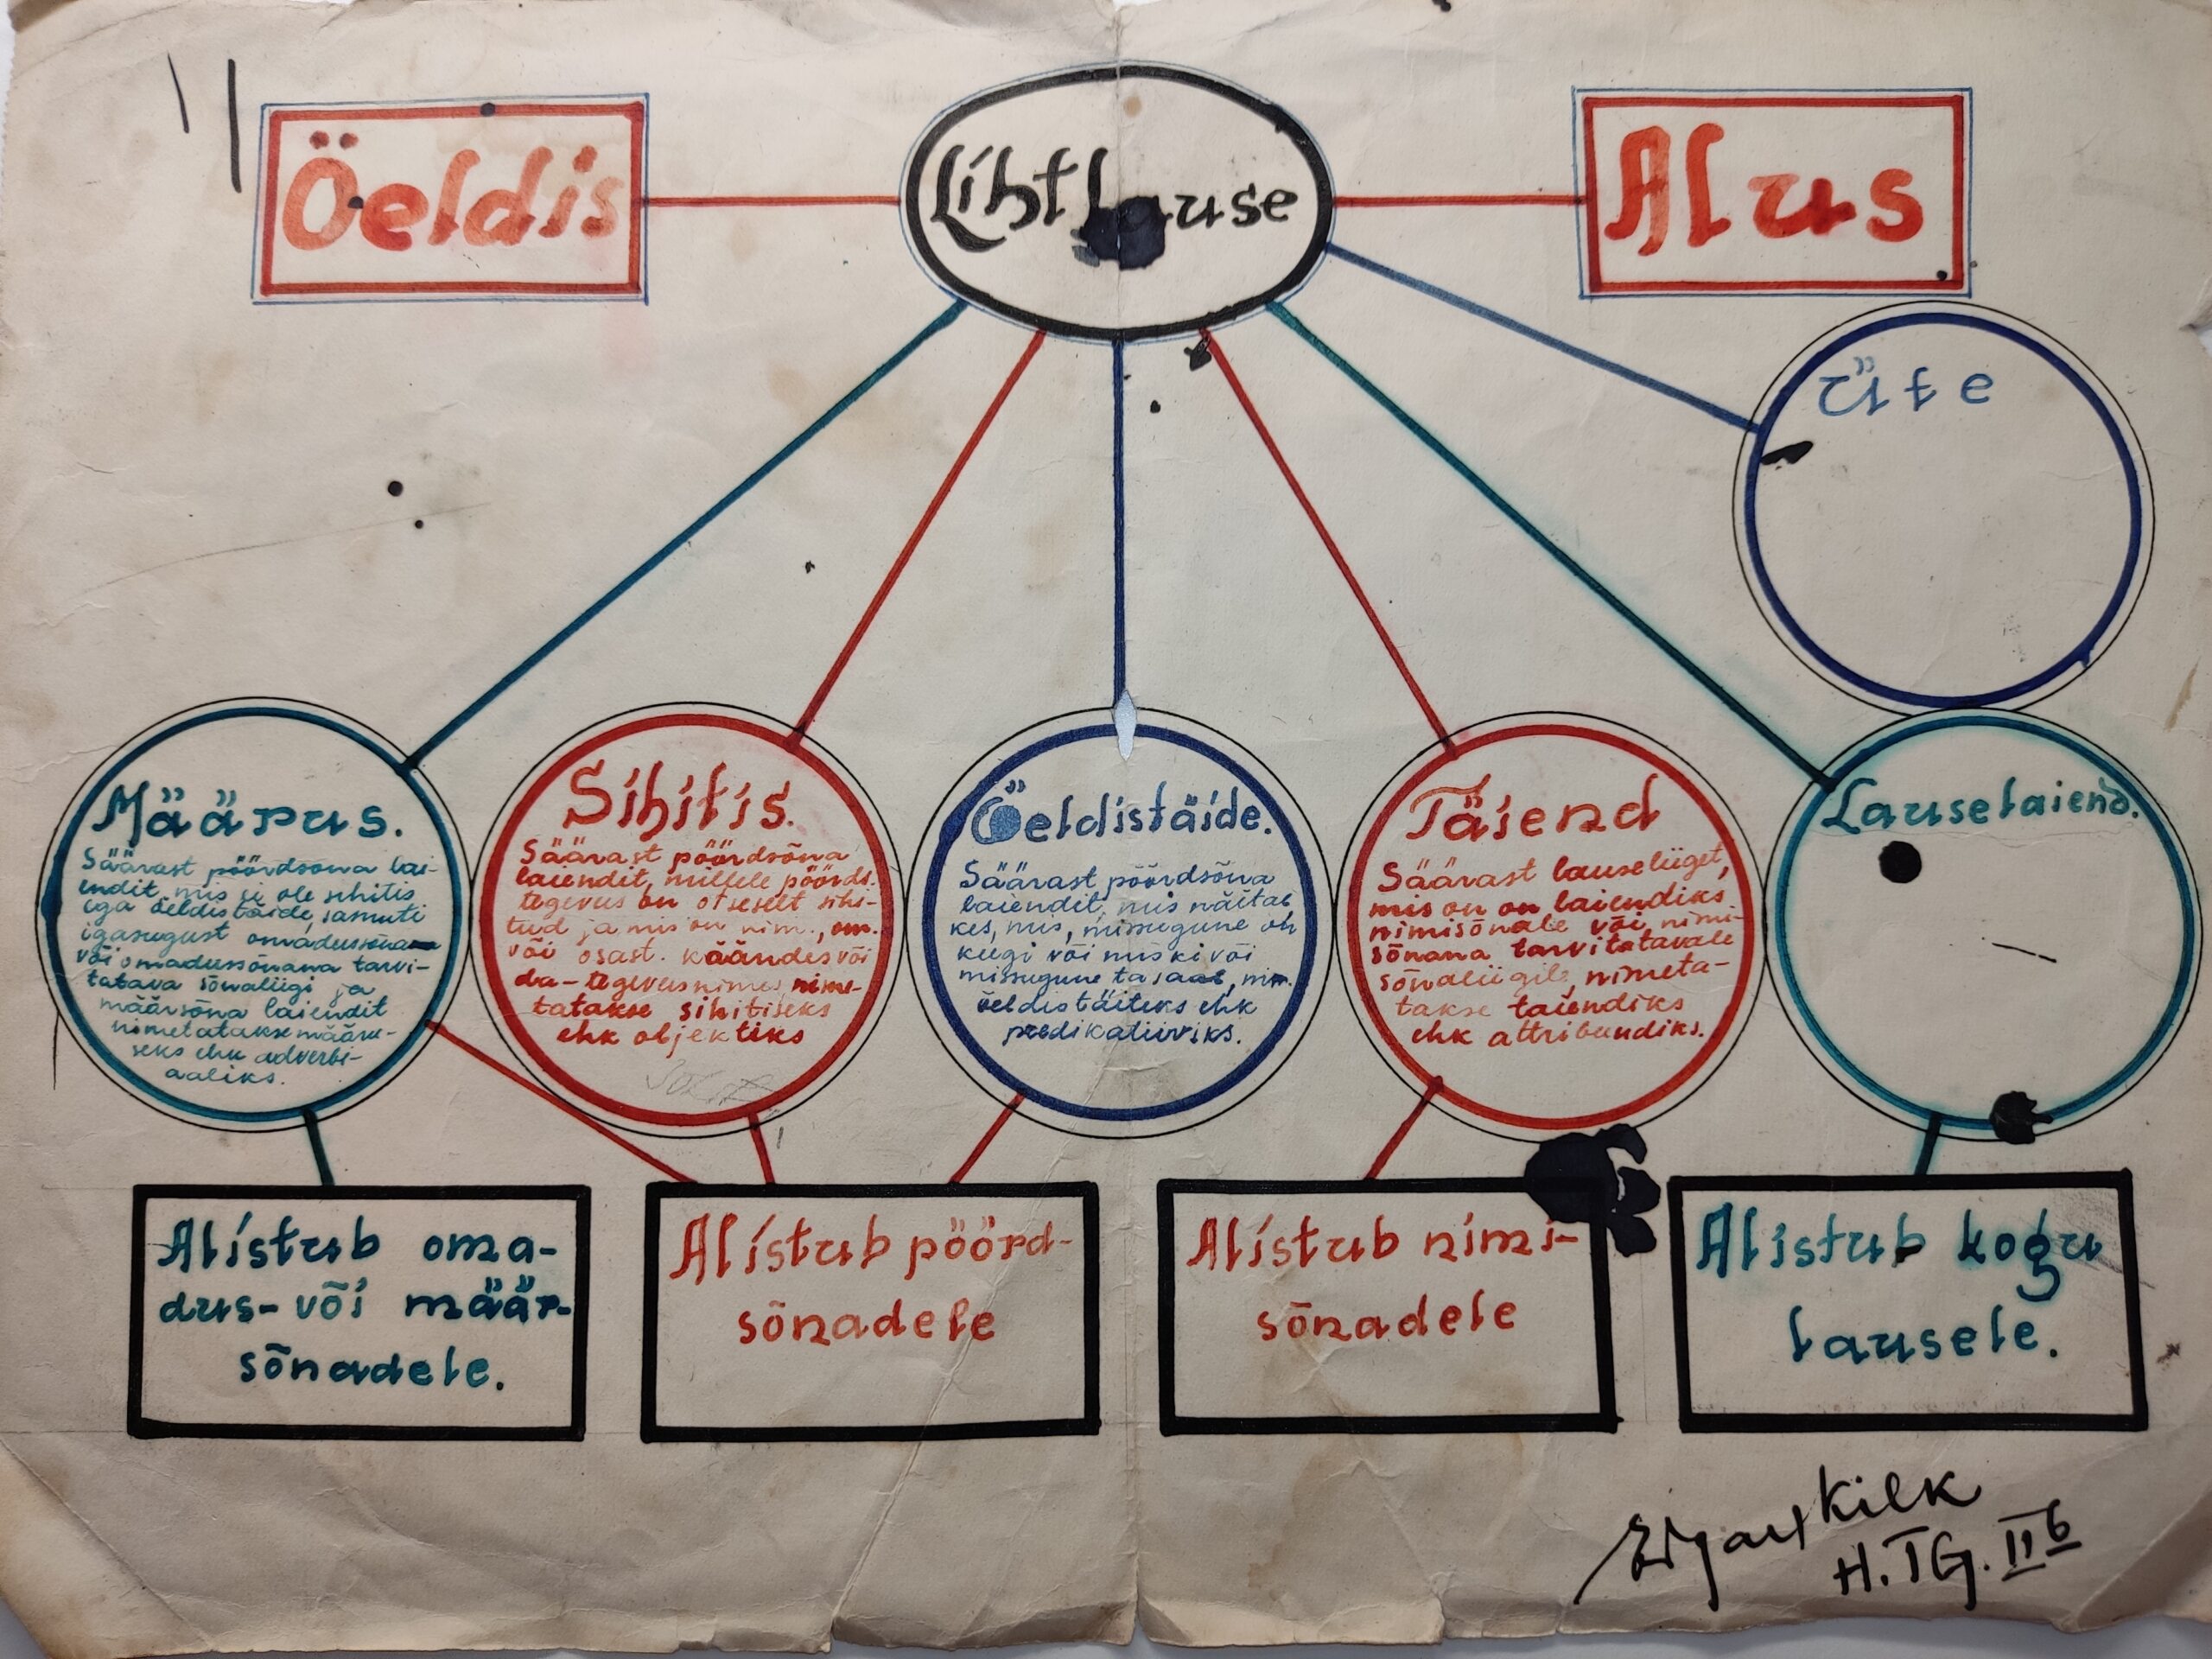 Öeldis
Lihtlause
Alus
Üte
Määrus.
Säärast pöördsõna lai-
endit, mis ei ole sihitis
ega öeldistäide, samuti
igasugust omadussõna
või omadussõnana tarvi-
tatava sõnaliigi ja
määrsõna laiendit
nimetatakse määru-
seks ehk adverbi-
aaliks.
Sihitis.
Säärast pöördsõna
laiendit, millele pöörds.
tegevus on otseselt sihi-
tud ja mis on nim., om.
või osast. käändes või
da-tegevusnimes, nime-
tatakse sihitiseks
ehk objektiks
Öeldistäide.
Säärast pöördsõna
laiendit, mis näitab
kes, mis, missugune on
keegi või miski või
missugune ta saab, nim.
öeldistäiteks ehk
predikatiiviks.
Täiend
Säärast lauseliiget,
mis on on laiendiks
nimisõnale või nimi-
sõnana tarvitatavale
sõnaliigile, nimeta-
takse täiendiks
ehk attribuudiks.
Lauselaiend.
Alistub oma-
dus- või määr-
sõnadele.
Alistub pöörd-
sõnadele
Alistub nimi-
sõnadele
Alistub kogu
lausele.
Kilk
H.TG. IIb